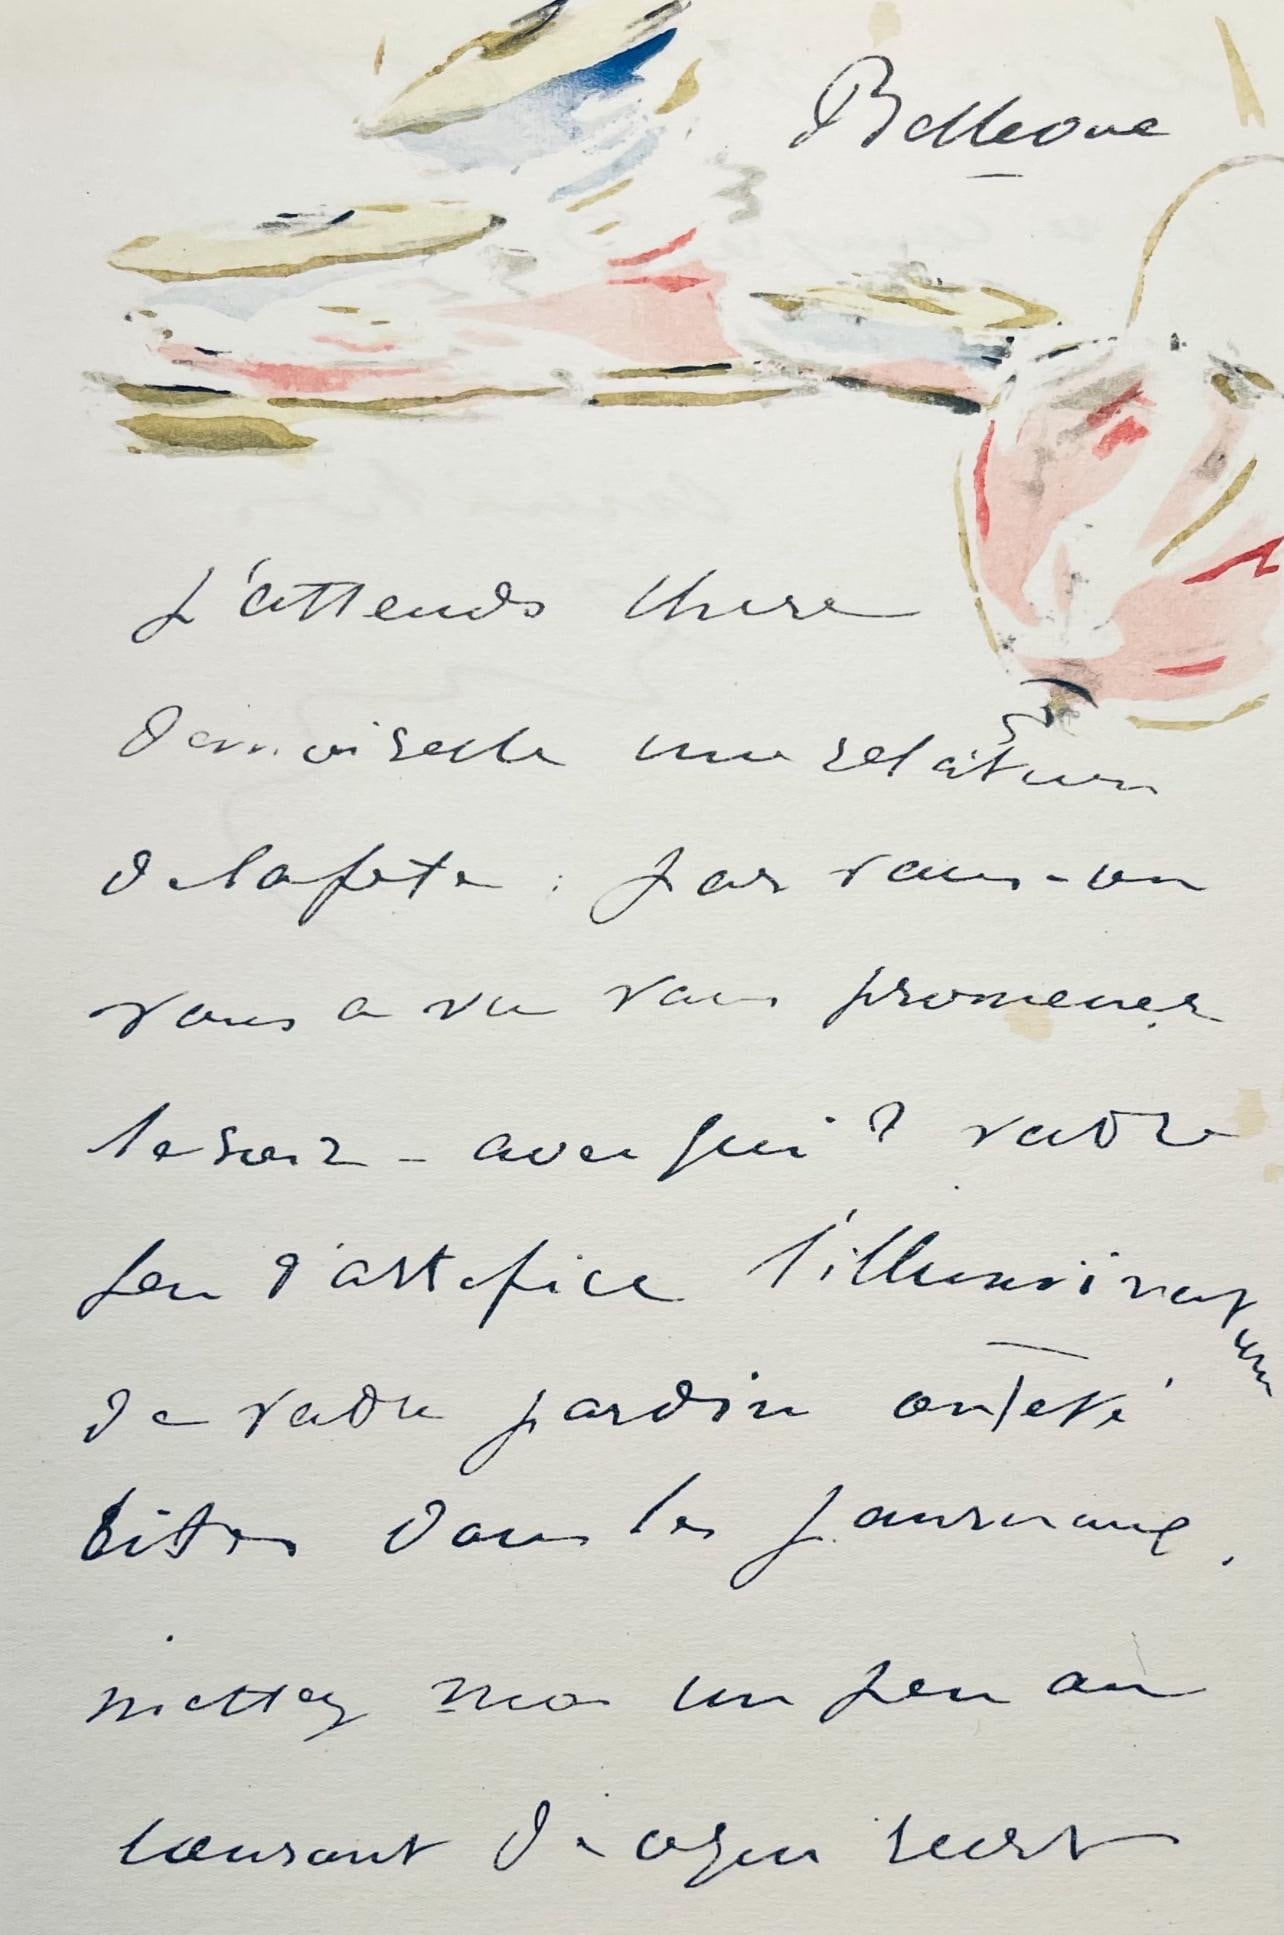 Bellevue
J'attends chere
demoiselle une relation
de la fete. par vous - on
vous a vu vous promener
le soir - avec qui ? votre
feu d'artifice l'illumination
de votre jardin ont été
cités dans les journaux.
mettez moi un peu au
courant de ce qui s'est